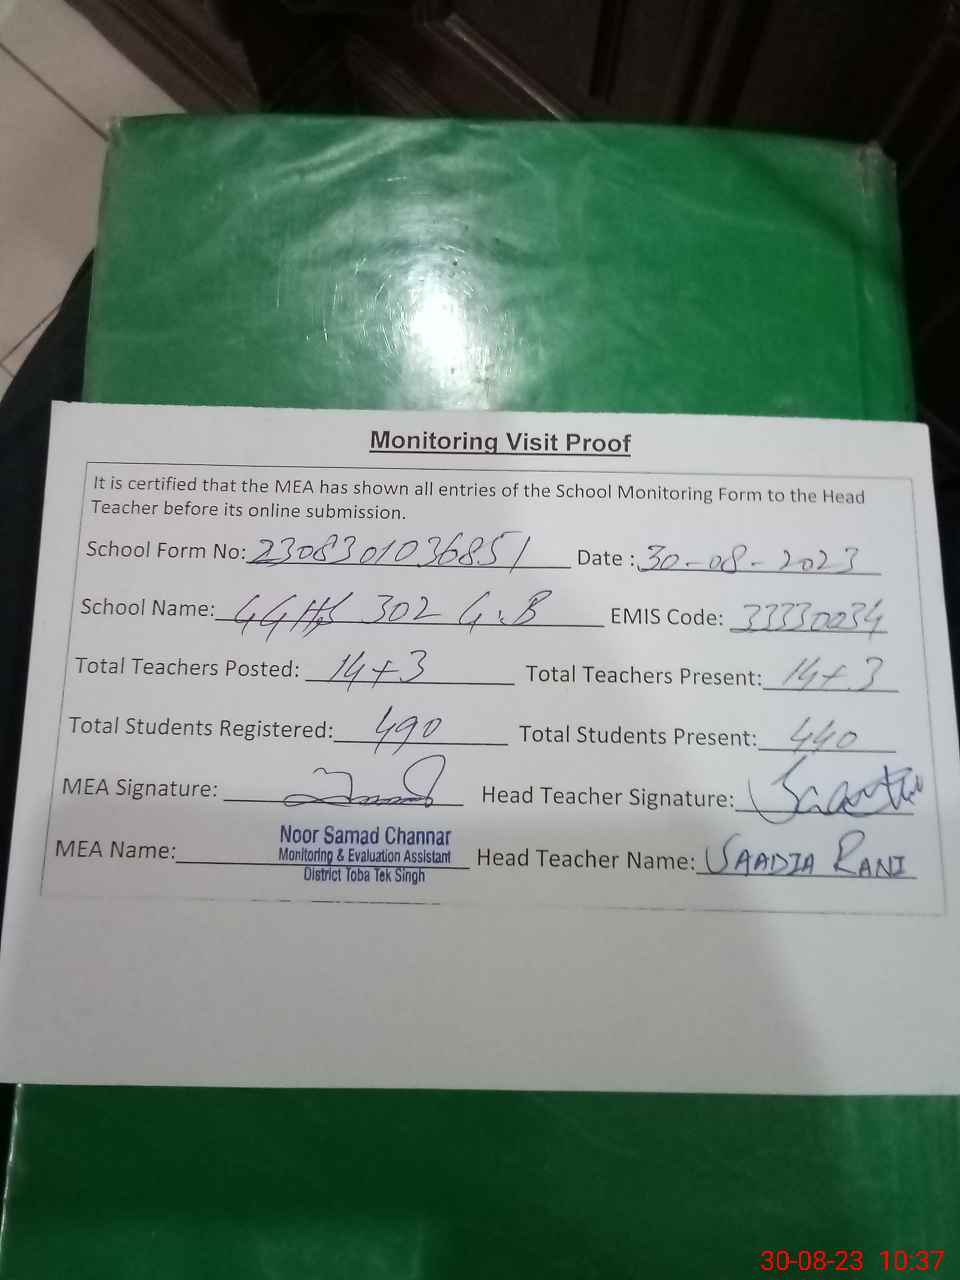 Monitoring Visit Proof
It is certified that the MEA has shown all entries of the School Monitoring Form to the Head
Teacher before its online submission.
School Form No: 2308301036851 Date : 30-08-2023
School Name: GGHS 302 G.B EMIS Code: 33330034
Total Teachers Posted: 14+3 Total Teachers Present: 14+3
Total Students Registered: 490 Total Students Present: 440
MEA Signature: Head Teacher Signature:
MEA Name: Noor Samad Channar
Monitoring & Evaluation Assistant
District Toba Tek Singh
Head Teacher Name: SAADIA RANI
30-08-23 10:37